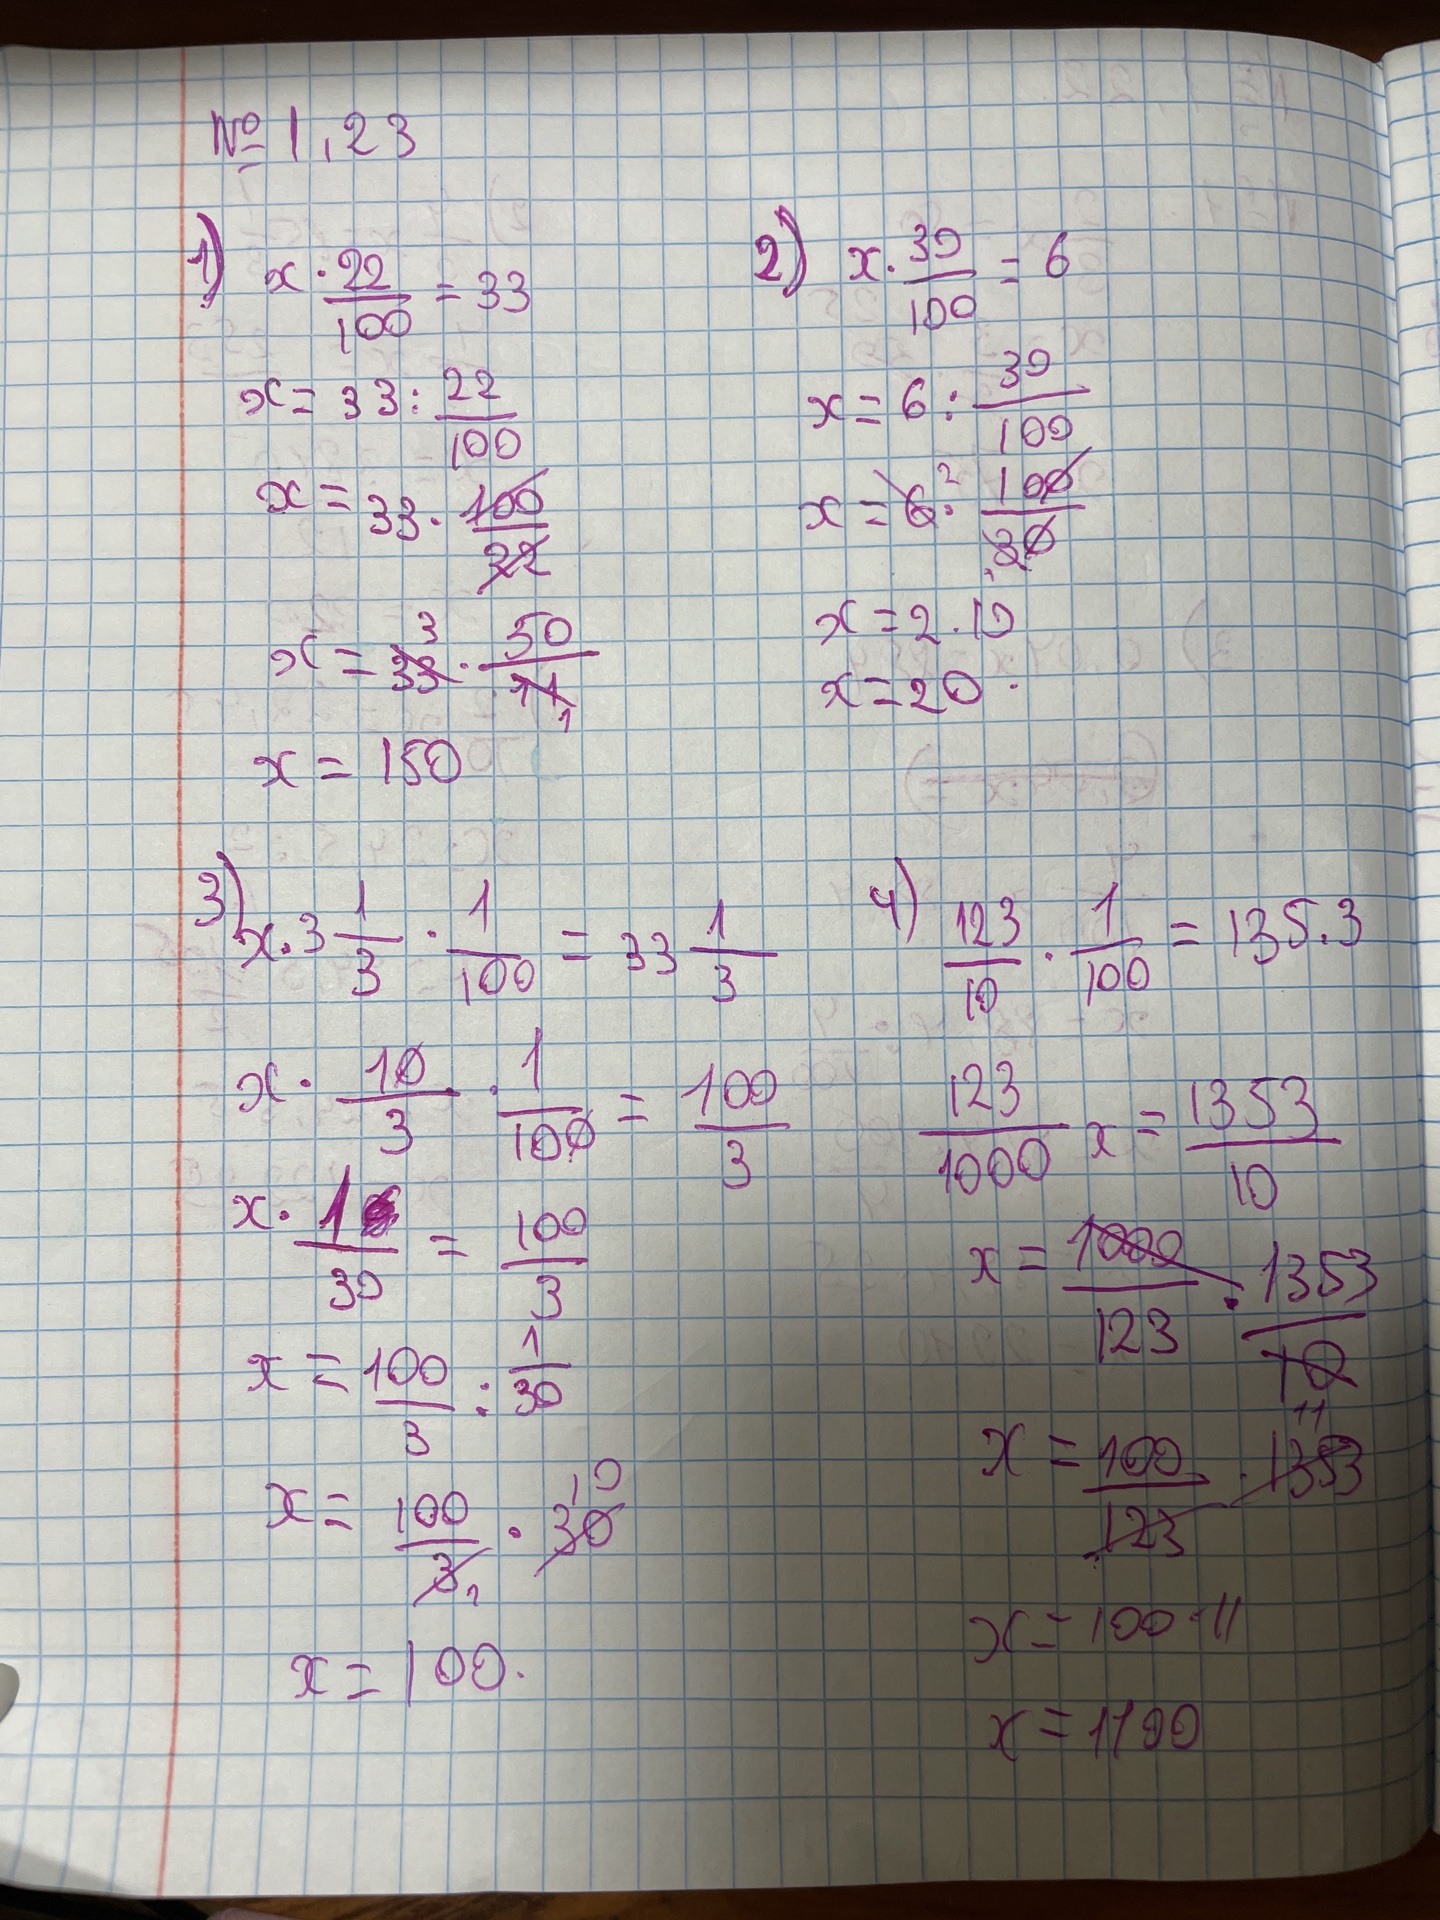 № 1,23
1) x · 22/100 = 33
x = 33 : 22/100
x = 33 · 100/22
x = 33 3 · 50/11 1
x = 150
2) x · 30/100 = 6
x = 6 : 30/100
x = 6 2 · 100/30
x = 2 · 10
x = 20 ·
3) x · 3 1/3 · 1/100 = 33 1/3
x · 10/3 · 1/100 = 100/3
x · 1/30 = 100/3
x = 100/3 : 1/30
x = 100/3 1 · 30 10
x = 100.
4) 123/10 · 1/100 = 135.3
123/1000 x = 1353/10
x = 1000/123 · 1353/10
x = 100/123 · 1353 11
x = 100 · 11
x = 1100